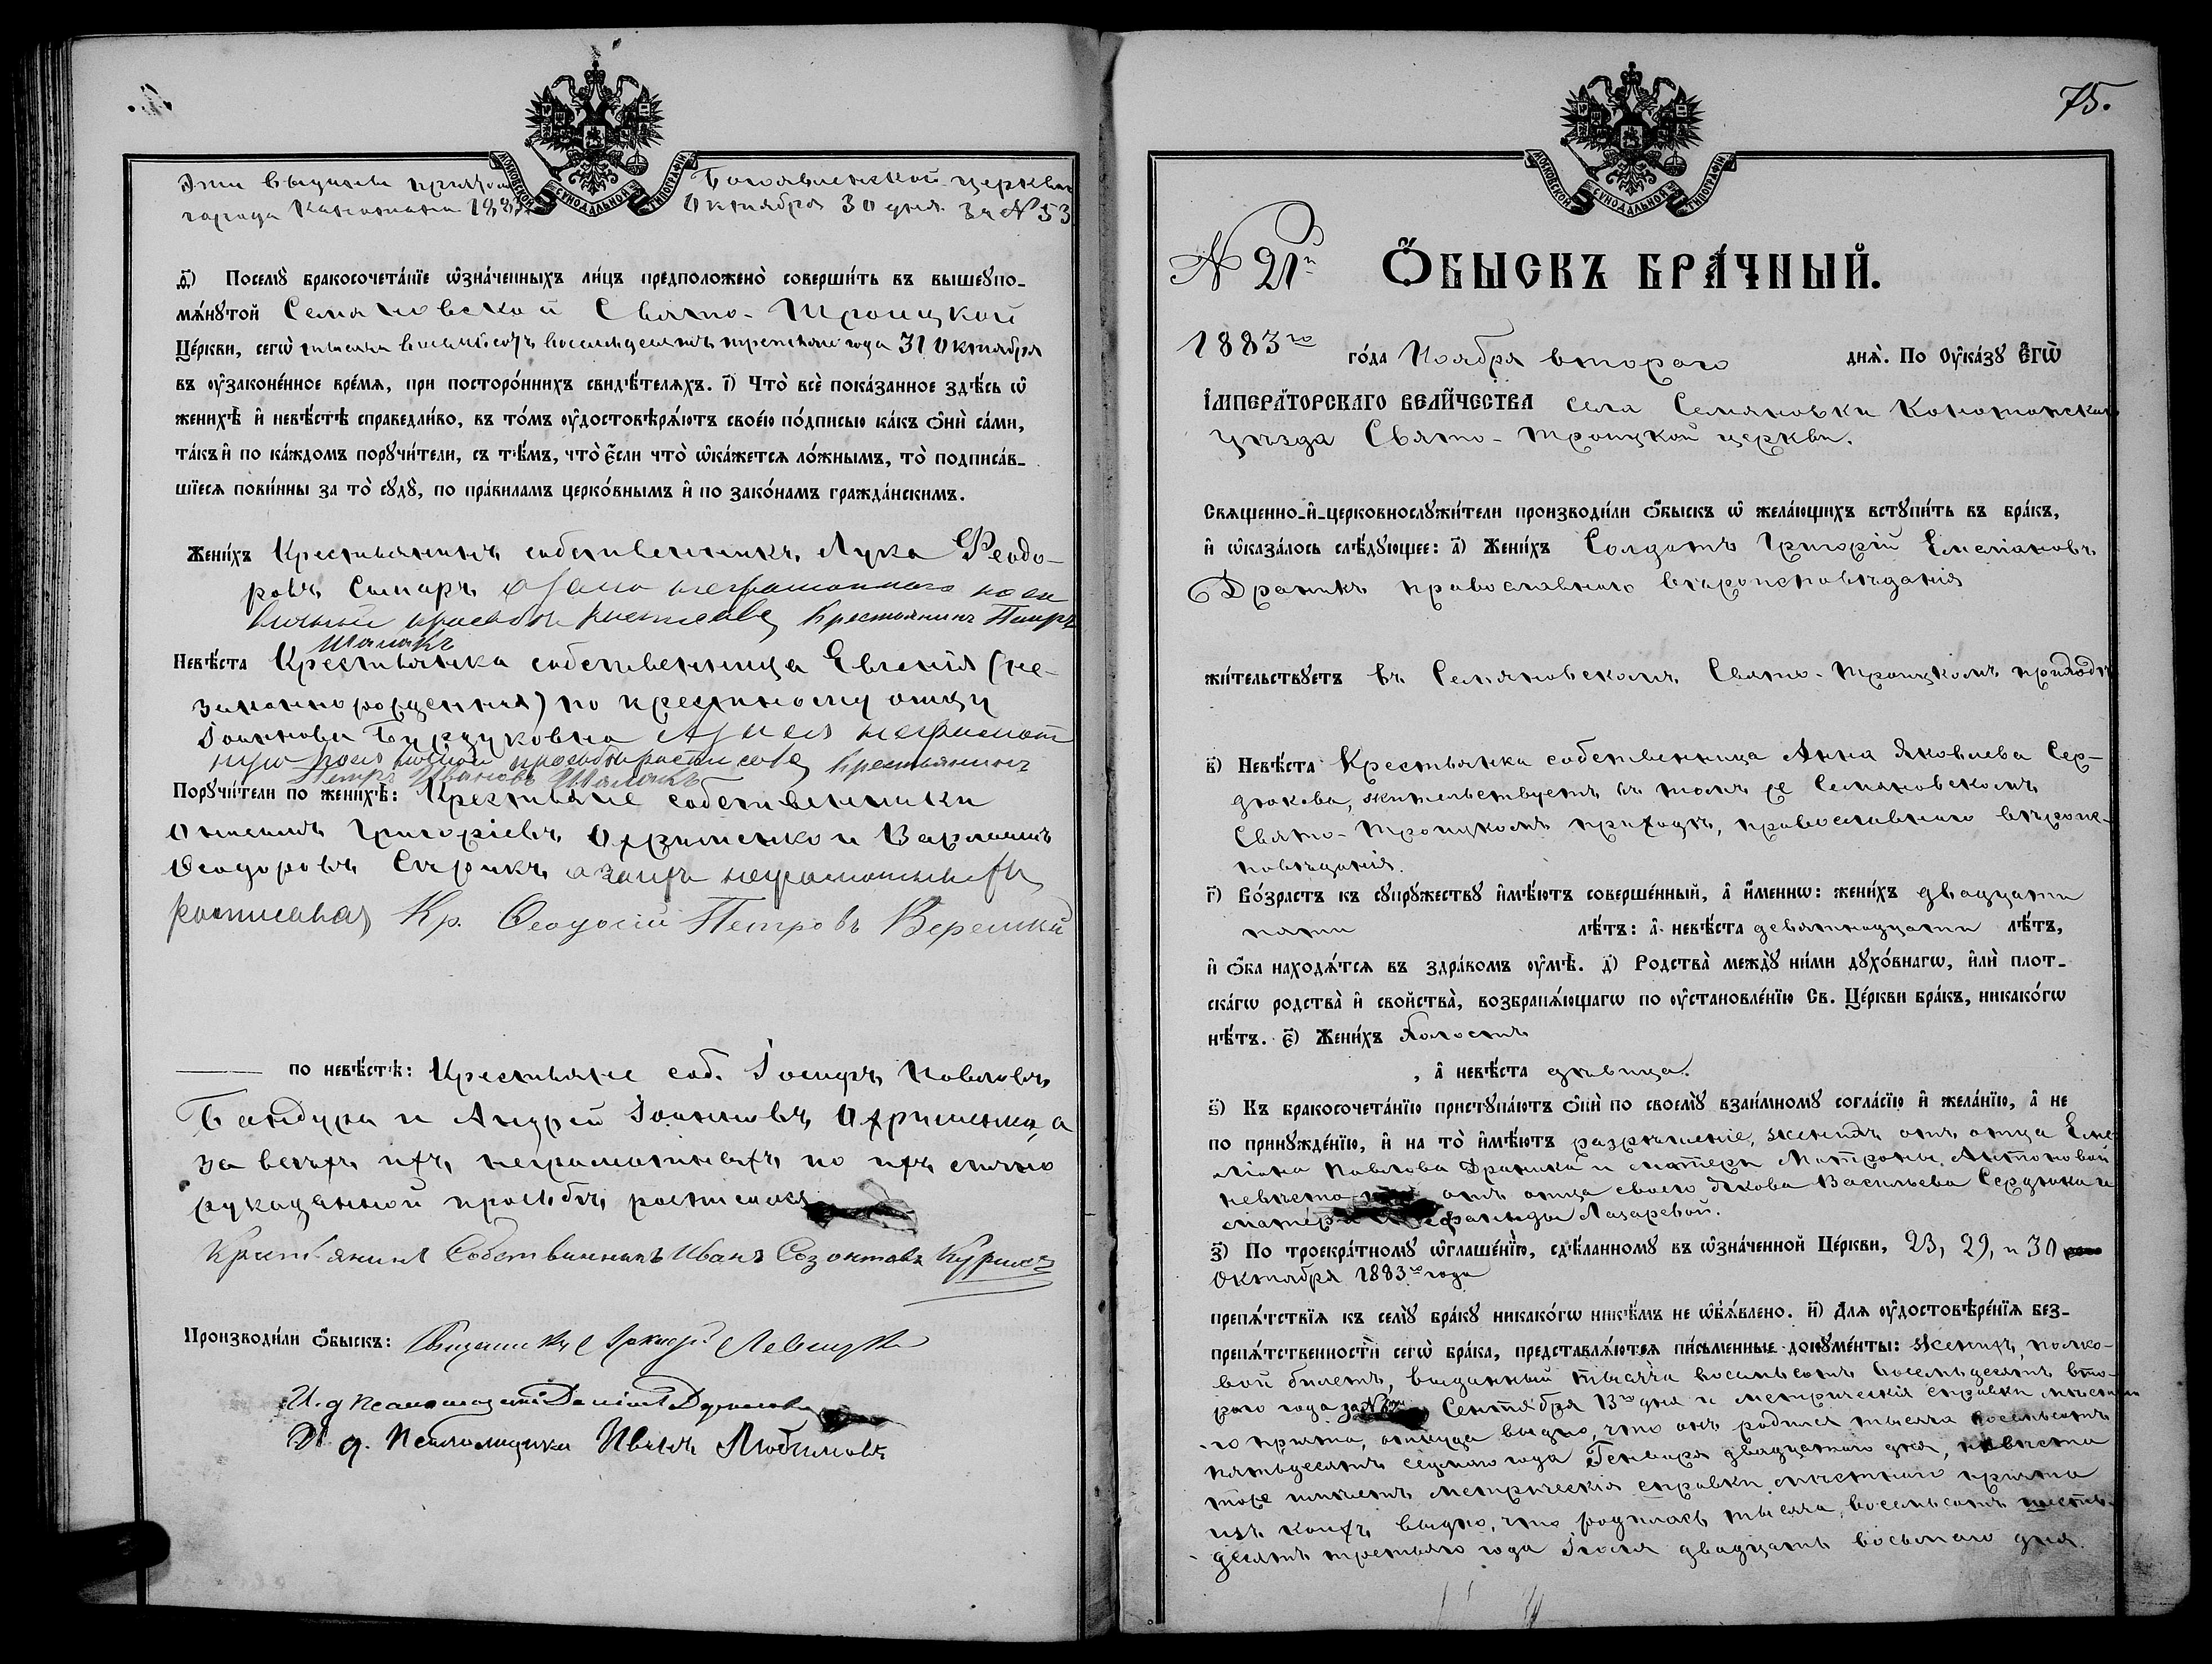 МОСКОВСКОЙ СѴНОДАЛЬНОЙ ТѴПОГРАФІИ
Богоявленской церкви
города Конотопа 1883 Октября 30 дня за № 53
д҃) Посемꙋ бракосочета́нїе ѡ҆зна́ченныхъ ли́цъ предположено̀ соверши́ть въ вышеꙋпо-
мѧ́нꙋтой Семяновской Свято-Троицкой
Це́ркви, сегѡ̀ тысяча восемьсотъ восемьдесятъ третьяго года 31 Октября
въ ᲂу҆законе́нное вре́мѧ, при посторо́ннихъ свидѣ́телѧхъ. і҃) Что̀ всѐ пока́занное здѣ́сь ѡ҆
женихѣ̀ и҆ невѣ́стѣ справедли́во, въ то́мъ ᲂу҆достовѣрѧ́ютъ свое́ю по́дписью ка́къ ѻ҆нѝ са́ми,
та́къ и҆ по ка́ждомъ порꙋчи́тели, съ тѣ́мъ, что̀ є҆́сли что̀ ѡ҆ка́жетсѧ ло́жнымъ, то̀ подписа́в-
шїесѧ пови́нны за то̀ сꙋдꙋ̀, по пра́виламъ церко́внымъ и҆ по зако́намъ гражда́нскимъ.
Жени́хъ Крестьянинъ собственникъ Лука Феодо-
ровъ а за него неграмотного по ея
личной просьбы росписався Крестьянинъ Петръ
Шалакъ
Невѣ́ста Крестьянка собственница Евгенія (не-
законнорожденная) по крестному отцу
Іоаннова
просьбы росписався Крестьянинъ
Петръ Ивановъ Шалакъ
Порꙋчи́тели по женихѣ̀: Крестьяне собственники
Григоріевъ и Варлаамъ
Феодоровъ а за ихъ неграмотныхъ
росписался Кр. Феодосій Петровъ
по невѣ́стѣ: Крестьяне соб. Іосифъ Павловъ
Бандура и Андрей Іоанновъ а
за всехъ ихъ неграмотныхъ по ихъ лично
рукоданной просьбѣ росписался
Крестьянинъ Собственникъ Иванъ Созонтовъ
Производи́ли ѻ҆́быскъ: Священникъ Левицкій
И. д. псаломщика Даніилъ
И. д. Псаломщика Иванъ Любимовъ
75.
МОСКОВСКОЙ СѴНОДАЛЬНОЙ ТѴПОГРАФІИ
№ 21й
Ѻ҆БЫСКЪ БРА́ЧНЫЙ.
1883го го́да Ноября втораго днѧ̀. По Оу҆ка́зꙋ Є҆гѡ̀
І҆мпера́торскагѡ Вели́чества села Семяновки Конотопскаго
уезда Свято-Троицкой церкви.
Свѧщенно-и҆-церковнослꙋжи́тели производи́ли ѻ҆́быскъ ѡ҆ жела́ющихъ встꙋпи́ть въ бра́къ,
и҆ ѡ҆каза́лось слѣ́дꙋющее: а҃) Жени́хъ Солдатъ Григорій Емеліановъ
Драникъ православнаго вѣроисповѣданія
жи́тельствꙋетъ въ Семяновскомъ Свято-Троицкомъ приходѣ
в҃) Невѣ́ста Крестьянка собственница Анна Яковлева Сер-
дюкова, жительствуетъ въ томъ же Семяновскомъ
Свято-Троицкомъ приходѣ, православнаго вѣроис-
повѣданія.
г҃) Во́зрастъ къ сꙋпрꙋ́жествꙋ и҆мѣ́ютъ соверше́нный, а҆ и҆́меннѡ: жени́хъ двадцати
пяти лѣ́тъ: а҆ невѣ́ста девятнадцати лѣ́тъ,
и҆ ѻ҆́ба нахо́дѧтсѧ въ здра́вомъ ᲂу҆мѣ̀. д҃) Родства̀ междꙋ̀ ни́ми дꙋхо́внагѡ, и҆лѝ плот-
ска́гѡ родства̀ и҆ свойства̀, возбранѧ́ющагѡ по ᲂу҆становле́нїю Св. Це́ркви бра́къ, никако́гѡ
нѣ́тъ. є҃) Жени́хъ холостъ
, а҆ невѣ́ста дѣвица.
ѕ҃) Къ бракосочета́нїю пристꙋпа́ютъ ѻ҆нѝ по своемꙋ̀ взаи́мномꙋ согла́сїю и҆ жела́нїю, а҆ не
по принꙋжде́нїю, и҆ на то̀ и҆мѣ́ютъ разрѣшеніе, женихъ отъ отца Еме-
ліана Павлова Драника и матери Матроны Антоновой
невѣста отъ отца своего Якова Васильева Сердюка и
матери Лазаревой.
з҃) По троекра́тномꙋ ѡ҆глаше́нїю, сдѣ́ланномꙋ въ ѡ҆зна́ченной Це́ркви, 23, 29, и 30
Октября 1883го года
препѧ́тствїѧ къ семꙋ̀ бра́кꙋ никако́гѡ никѣ́мъ не ѡ҆б̾ѧ́влено. и҃) Длѧ ᲂу҆достовѣре́нїѧ без-
препѧ́тственности сегѡ̀ бра́ка, представлѧ́ютсѧ пи́сьменные докꙋме́нты: женихъ, полко-
вой билетъ, выданный тысяча восемьсотъ восемьдесятъ вто-
раго года за № Сентября 13го дня и метрическія справки мѣстна-
го причта, откуда видно, что онъ родился тысяча восемьсотъ
пятьдесятъ седмаго года Генваря двадцатаго дня, невѣста
тоже имѣетъ метрическія справки мѣстнаго причта
изъ коихъ видно, что родилась тысяча восемьсотъ шесть-
десятъ третьяго года Іюля двадцать восьмаго дня.